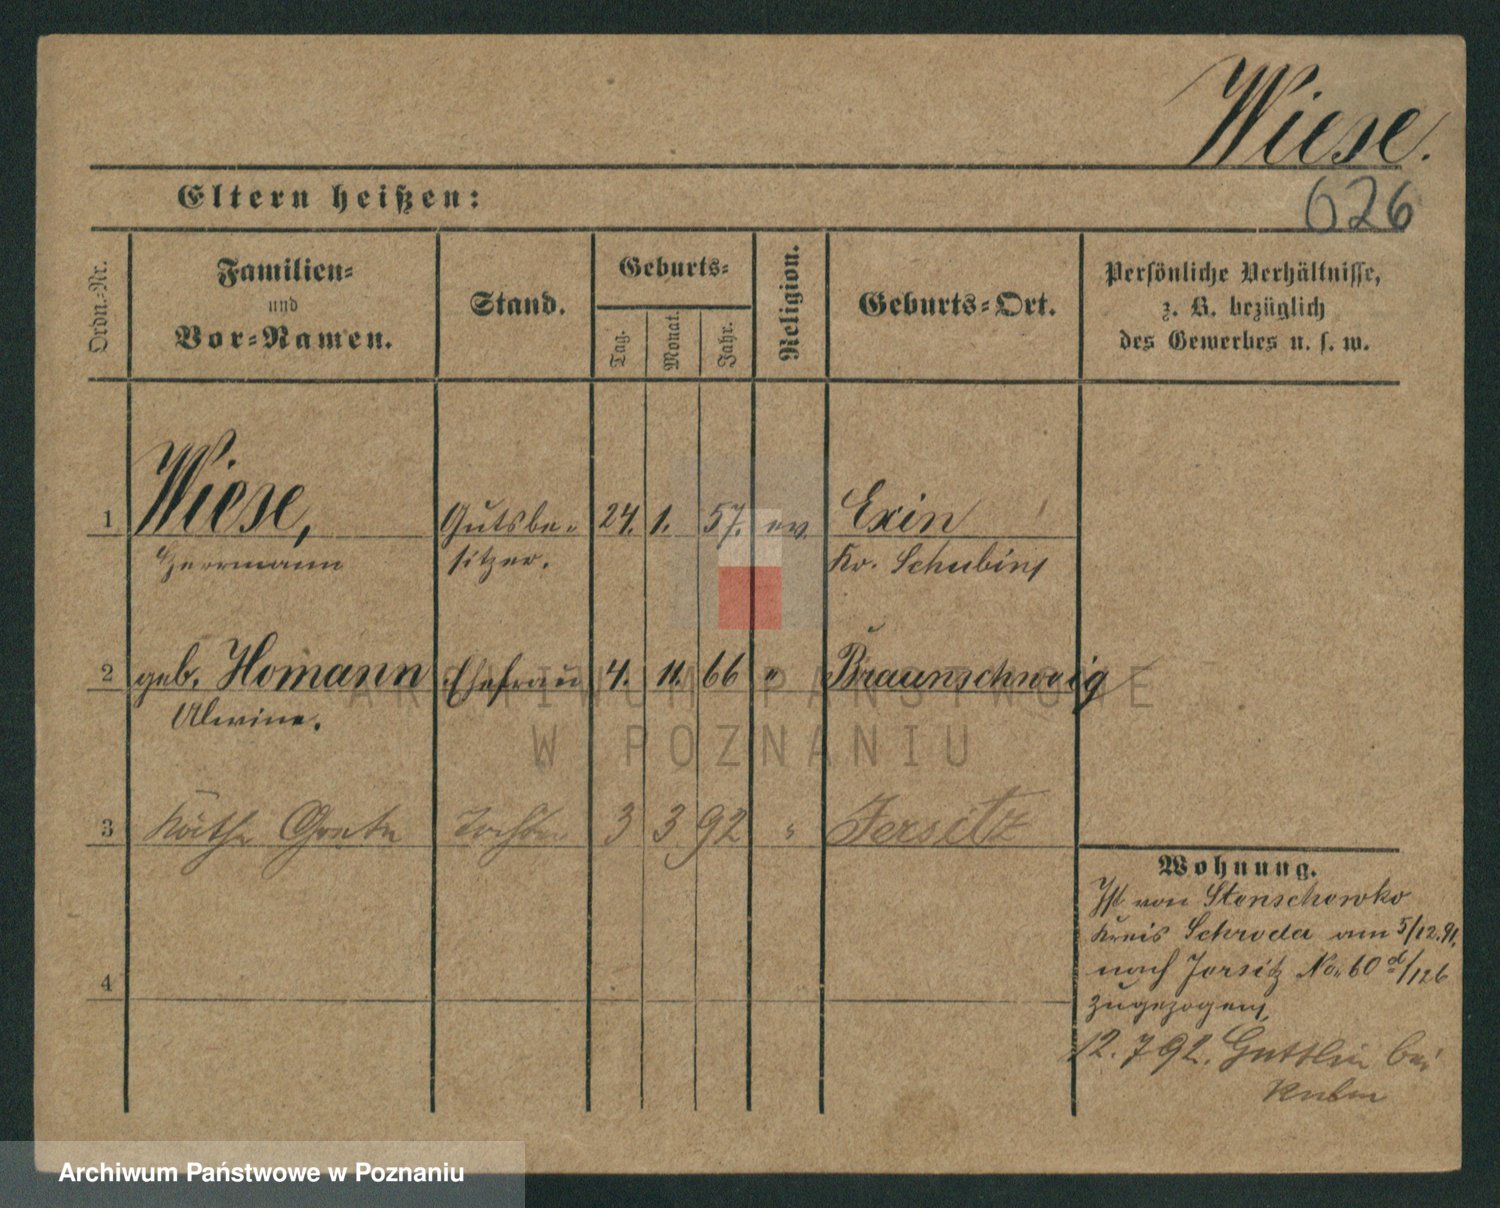 Wiese.
626
Eltern heißen:
Ordn.-Nr.
Familien-
und
Vor-Namen.
Stand.
Geburts-
Tag.
Monat.
Jahr.
Religion.
Geburts-Ort.
Persönliche Verhältnisse,
z. B. bezüglich
des Gewerbes u. s. w.
1 Wiese, Gutsbe- 24. 1. 57. ev Exin
Herrmann sitzer. Kr. Schubin
2 geb. Homann Ehefrau 4. 11. 66 " Braunschweig
Alwine.
3 Käthe Grete Tochter 3 3 92 " Jersitz
4
Wohnung.
Ist von Stenschewko
Kreis Schroda am 5/12.91.
nach Jersitz No. 60 d/126
zugezogen
12.7 92. bei
ARCHIWUM PAŃSTWOWE
W POZNANIU
Archiwum Państwowe w Poznaniu